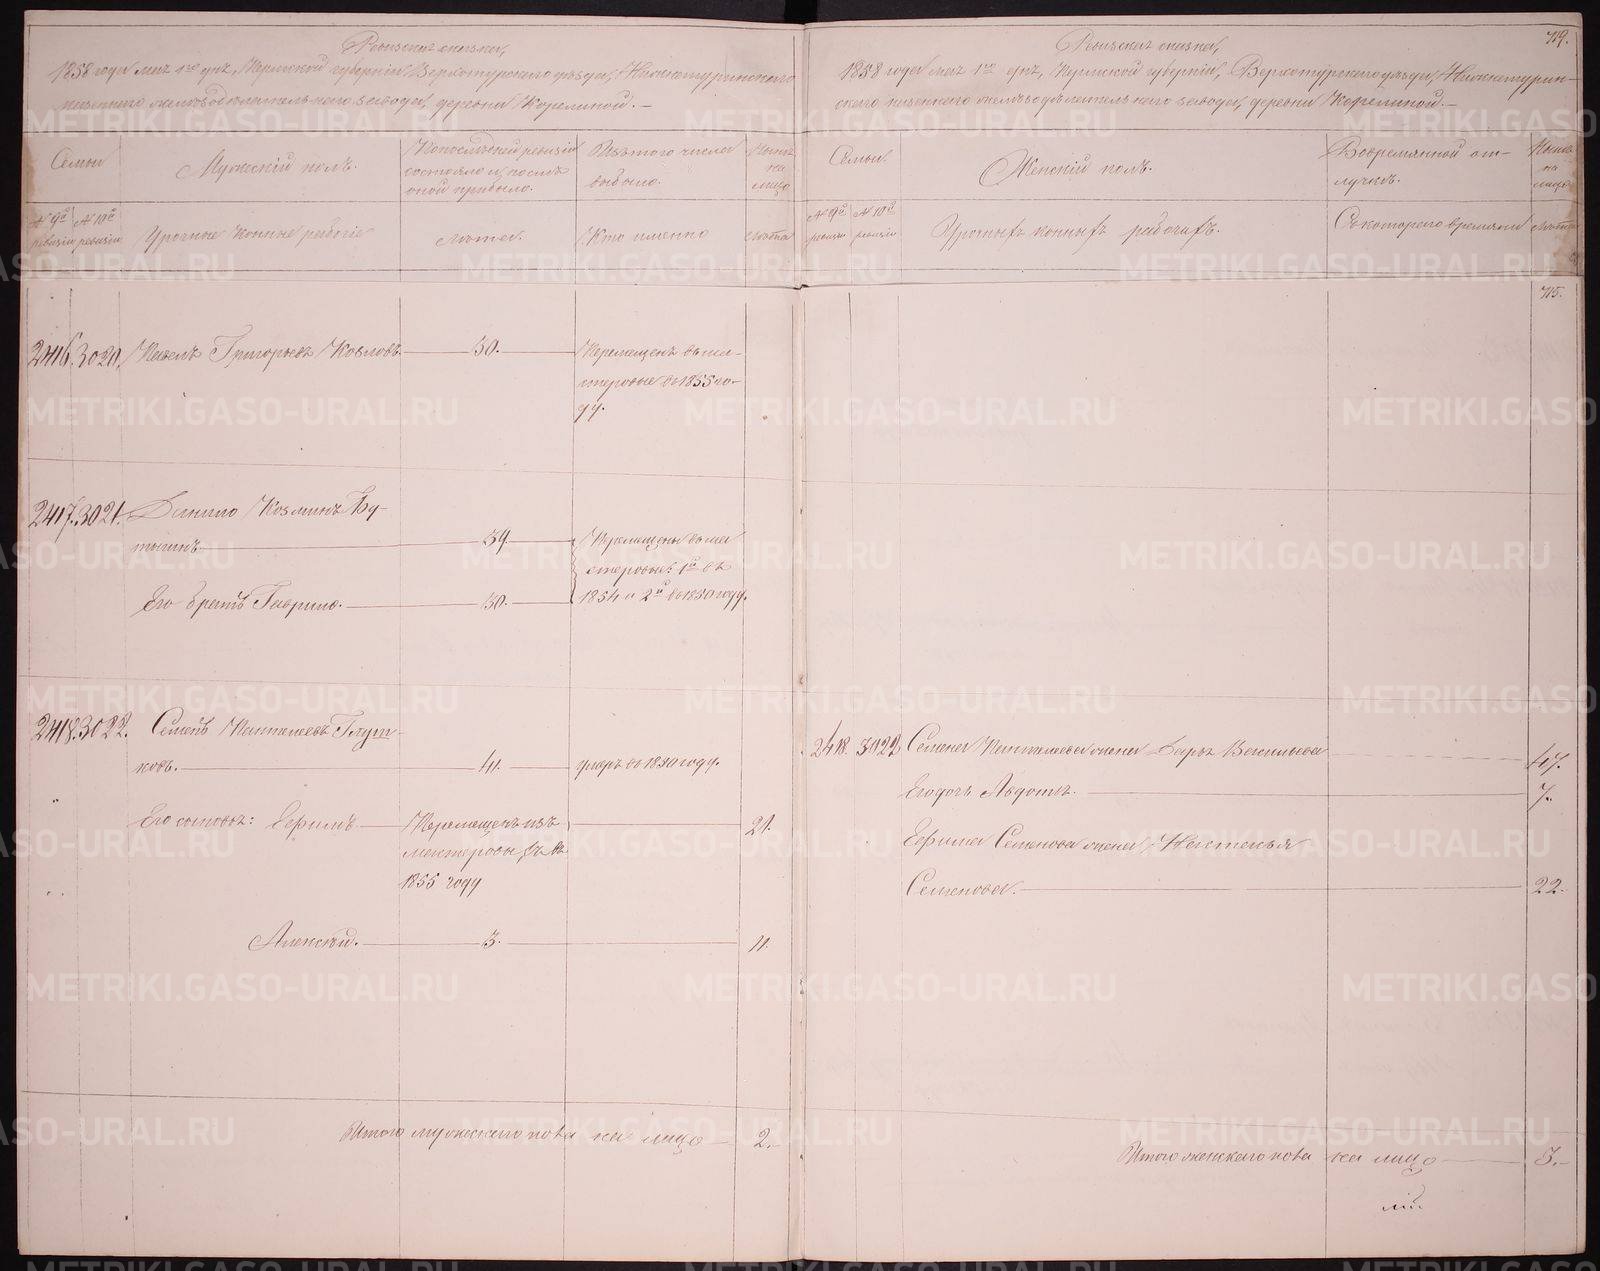 Ревизская сказка,
1858 года мая 1го дня, Пермской губернии, Верхотурского уезда, Нижнетуринского
казеннаго железоделательнаго завода, деревни Корелиной.
Семьи
Мужскiй полъ.
По последней ревизiи
состояло и после
оной прибыло.
Изъ того числа
выбыло.
Ныне
на
лицо
№ 9й ревизiи
№ 10й ревизiи
Урочные конные рабочiе
Лета.
Кто именно
Лета
2416. 3020. Павелъ Григорьевъ Козловъ 30. Перемещенъ въ ма-
стеровые въ 1855 го-
ду.
2417. 3021. Данило Козминъ Бу-
тыгинъ 39. Перемещены въ ма
стеровые 1й въ
Его братъ Гаврило. 30. 1854 и 2й въ 1850 году.
2418. 3022. Семенъ Пантелеевъ Глут-
ковъ. 41. умеръ въ 1850 году.
Его сыновья: Ефимъ Перемещенъ изъ 21.
мастеровыхъ въ
1855 году
Алексей. 3. 11.
Итого мужескаго пола на лицо 2.
719.
Ревизская сказка,
1858 года мая 1го дня, Пермской губернии, Верхотурского уезда, Нижнетурин-
ского казеннаго железоделательнаго завода, деревни Корелиной.
Семьи.
Женскiй полъ.
Во временной от-
лучке.
Ныне
на
лицо
№ 9й ревизiи
№ 10й ревизiи
Урочныхъ конныхъ рабочихъ.
Съ котораго времяни
Лета
715.
2418. 3022 Семена Пантелеева жена Дарья Васильева 47.
Его дочь Авдотья. 7.
Ефима Семенова жена Настасья
Семенова. 22.
Итого женскаго пола на лицо 3.
METRIKI.GASO-URAL.RU